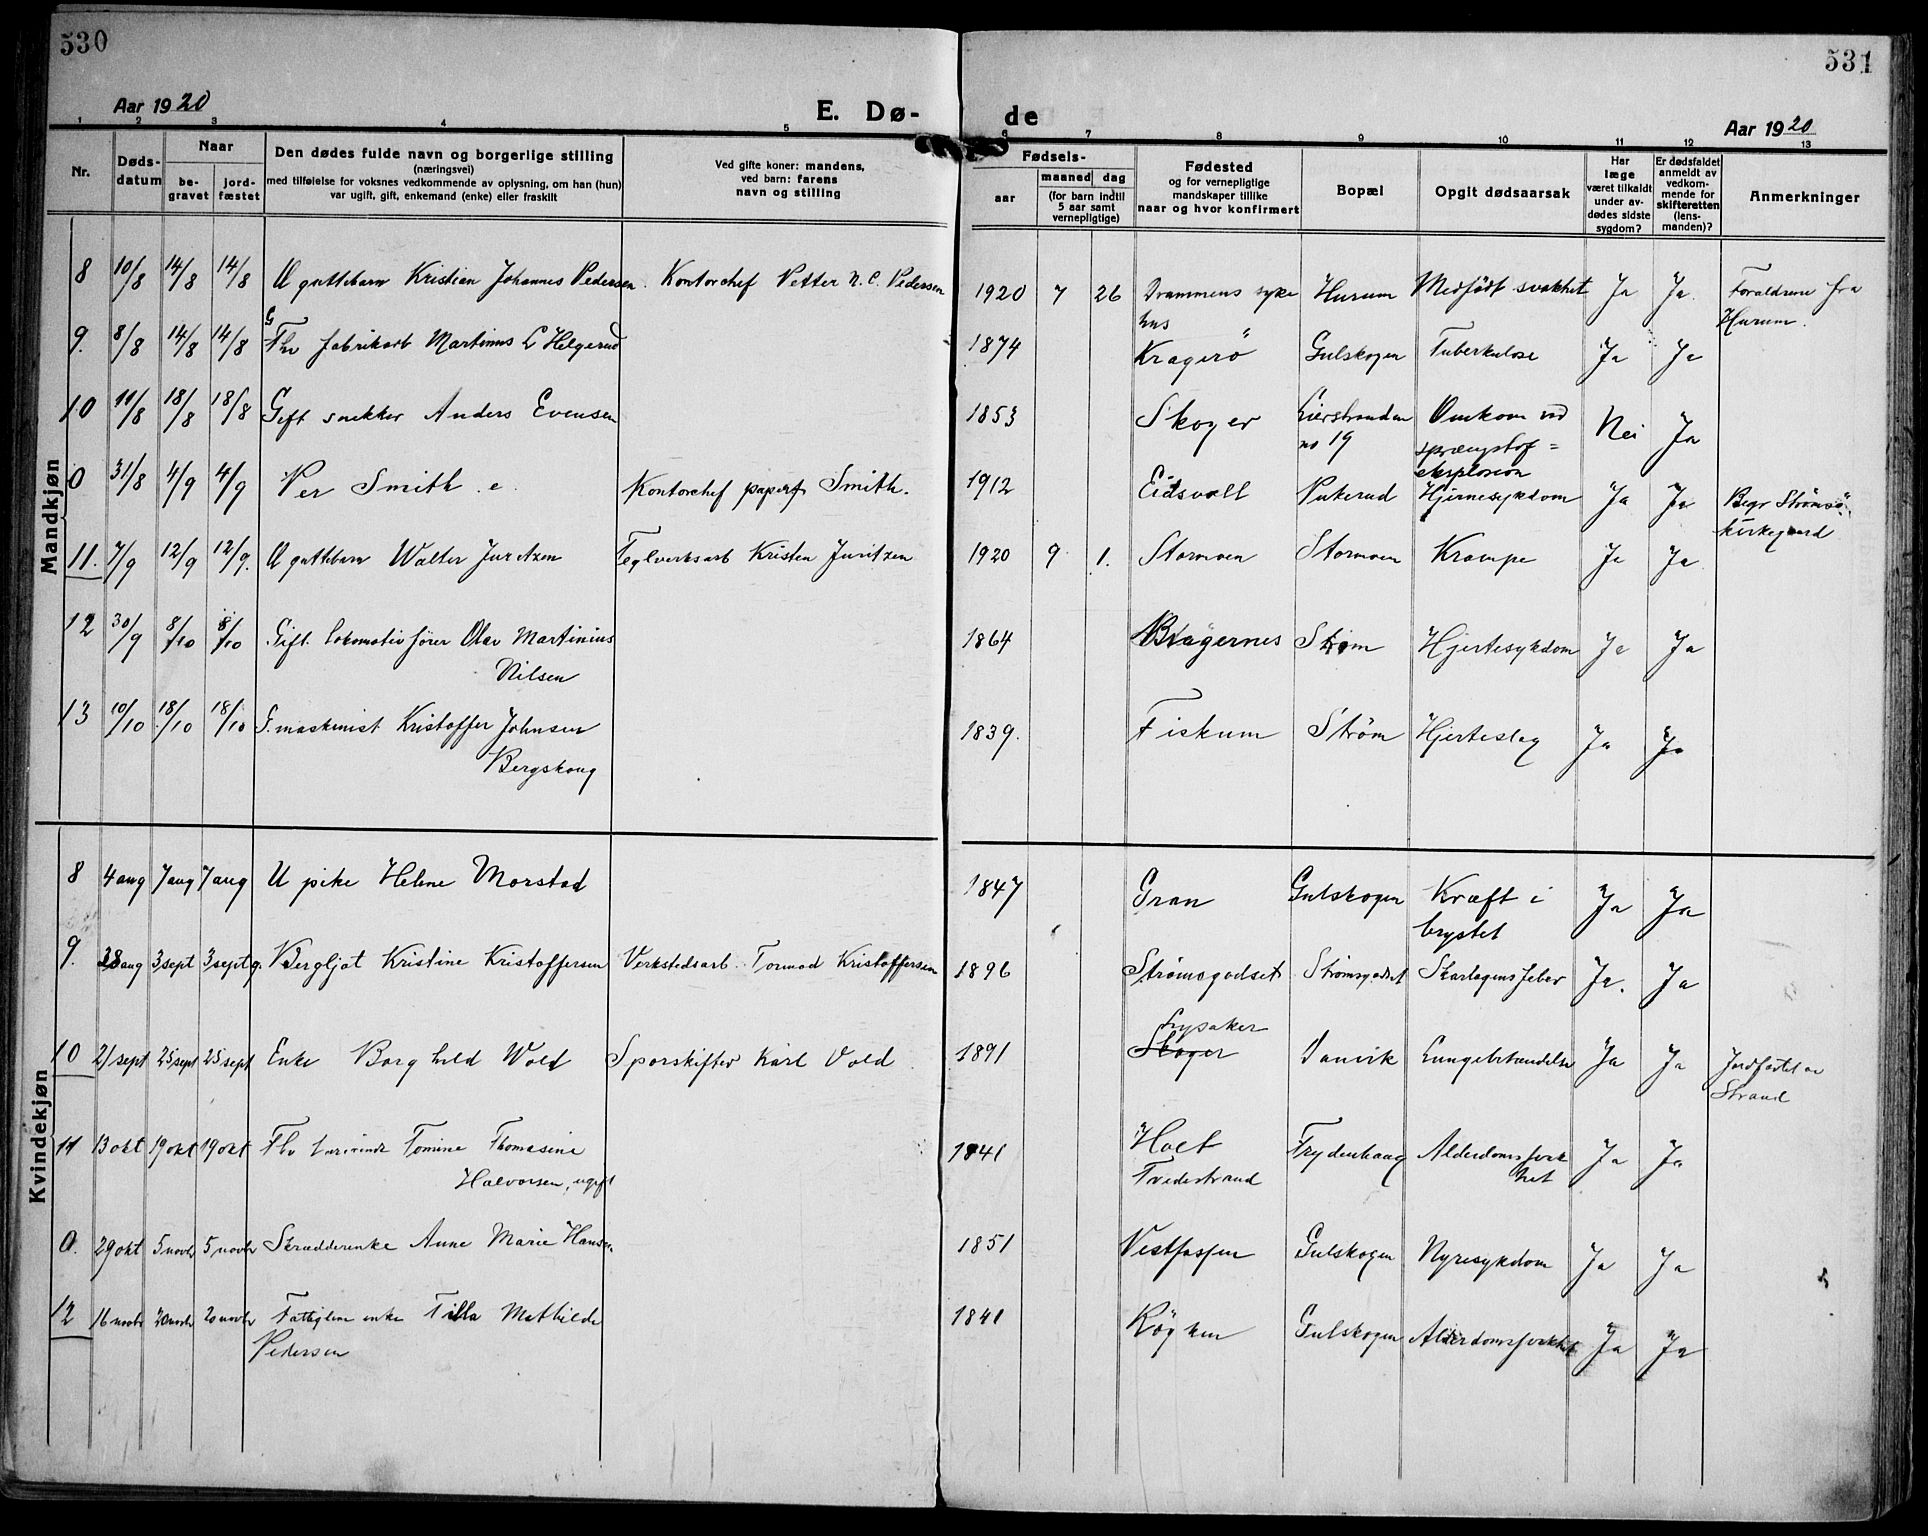 530
531
Aar 1920
E. Dø-
de
Aar 1920
1 2 3 4 5 6 7 8 9 10 11 12 13
Nr.
Døds-
datum
Naar
be-
gravet
jord-
fæstet
Den dødes fulde navn og borgerlige stilling
(næringsvei)
med tilføielse for voksnes vedkommende av oplysning, om han (hun)
var ugift, gift, enkemand (enke) eller fraskilt
Ved gifte koner: mandens,
ved barn: farens
navn og stilling
Fødsels-
aar
maaned dag
(for barn indtil
5 aar samt
vernepligtige)
Fødested
og for vernepligtige
mandskaper tillike
naar og hvor konfirmert
Bopæl
Opgit dødsaarsak
Har
læge
været tilkaldt
under av-
dødes sidste
sygdom?
Er dødsfaldet
anmeldt av
vedkom-
mende for
skifteretten
(lens-
manden)?
Anmerkninger
Mandkjøn
8 10/8 14/8 14/8 U guttebarn Kristian Johannes Pedersen. Kontorchef Petter N. C. Pedersen 1920 7 26 Drammens syke Hurum Medfødt svakhet Ja Ja Foraldrene fra
hus Hurum.
G
9. 8/8 14/8 14/8 Fhv fabrikarb Martinus L Helgerud 1874 Kragerö Gulskogen Tuberkulose Ja Ja
10 11/8 18/8 18/8 Gift snekker Anders Evensen 1853 Skoger Lierstranden Omkom ved Nei Ja
no 19 sprængstof =
eksplosion
0 31/8 4/9 4/9 Per Smith e. Kontorchef papirf Smith. 1912 Eidsvoll Pukerud Hjernesykdom Ja Ja Begr Strømsø
kirkegaard
11. 7/9 12/9 12/9. U guttebarn Walter Juritzen Teglverksarb Kristen Juritzen 1920 9 1. Stormoen Stormoen Krampe Ja Ja
12 30/9 8/10 8/10 Gift lokomotivfører Olav Martinius 1864 Bragernes Strøm Hjertesykdom Ja Ja
Nilsen
13 10/10 18/10 18/10 G. maskinist Kristoffer Johnsen 1839. Fiskum Strøm Hjerteslag Ja Ja
Bergskaug
Kvindekjøn
8 4 aug 7 aug 7 aug U pike Helene Morstad 1847 Gran Gulskogen Kræft i Ja Ja
brystet
9. 28 aug 3 sept 3 sept g. Bergljot Kristine Kristoffersen Verkstedsarb. Tormod Kristoffersen 1896 Strømsgodset Strømsgodset Skarlagensfeber Ja. Ja
Lysaker
10 21 sept 25 sept 25 sept Enke Borghild Wold Sporskifter Karl Vold 1891 Skoger Danvik Lungebetændelse Ja Ja Jordfæstet av
Strand
11 13 okt 19 okt 19 okt Fhv lærerinde Tomine Thomasine 1841 Holt Frydenhaug Alderdomssvak Ja Ja
Halvorsen, ugift Tvedestrand het
0. 29 okt 5 novbr 5 novbr Skrædderenke Anne Marie Hansen 1851 Vestfossen Gulskogen Nyresykdom Ja Ja
12 16 novbr 20 novbr 20 novbr Fattiglem enke Tilla Mathilde 1841 Røyken Gulskogen Alderdomssvakhet Ja Ja
Pedersen